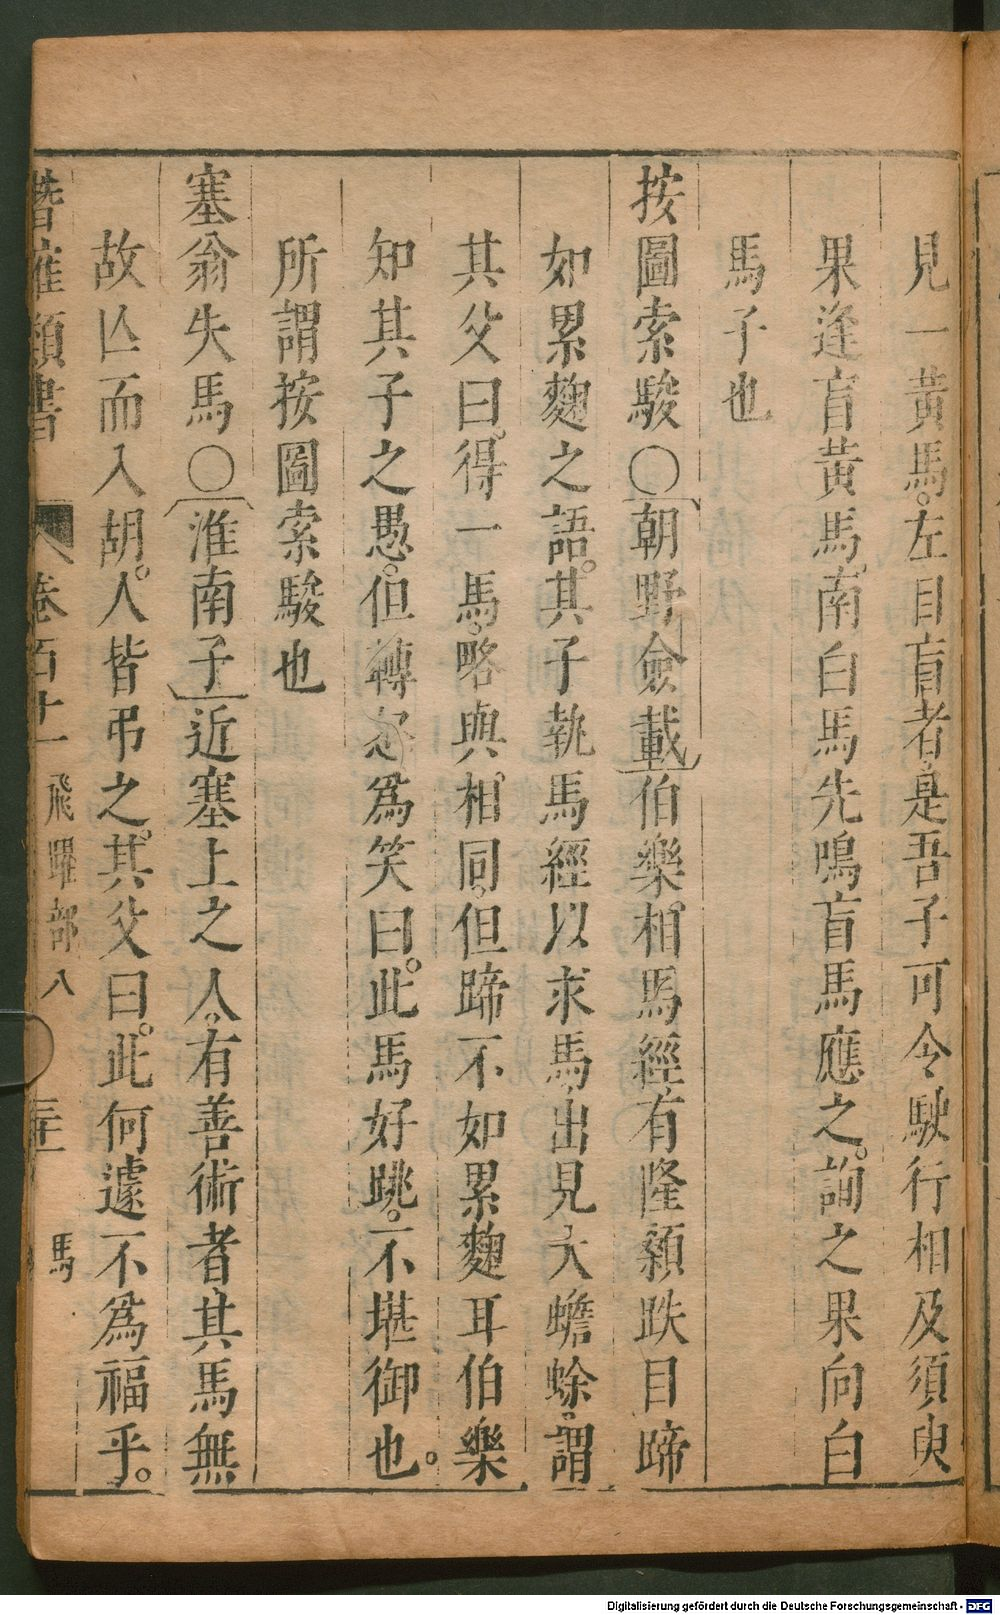 見一黃馬。左目盲者。是吾子。可令駛行相及。須臾
果逢盲黃馬。南白馬先鳴盲馬應之。詢之果向白
馬子也
按圖索駿○朝野僉載伯樂相馬經有隆顙跌目蹄
如累麴之語。其子執馬經以求馬。出見大蟾蜍。謂
其父曰。得一馬。略與相同。但蹄不如累麴耳伯樂
知其子之愚。但轉怒爲笑曰。此馬好跳。不堪御也。
所謂按圖索駿也
塞翁失馬○淮南子近塞上之人。有善術者其馬無
故亾而入胡。人皆弔之。其父曰。此何遽不爲福乎。
潛確類書 卷百十一 飛躍部八 三十一 馬
Digitalisierung gefördert durch die Deutsche Forschungsgemeinschaft - DFG